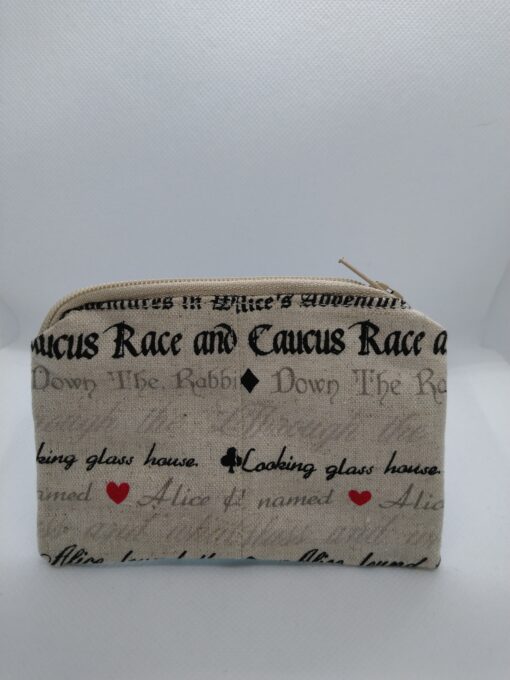 in Alice's Adventur
aucus Race and Caucus Race a
Down The Rabbi Down The Ra
Through the
king glass house. Looking glass house.
named Alice & named Alic
and glass and
Alice found Alice found